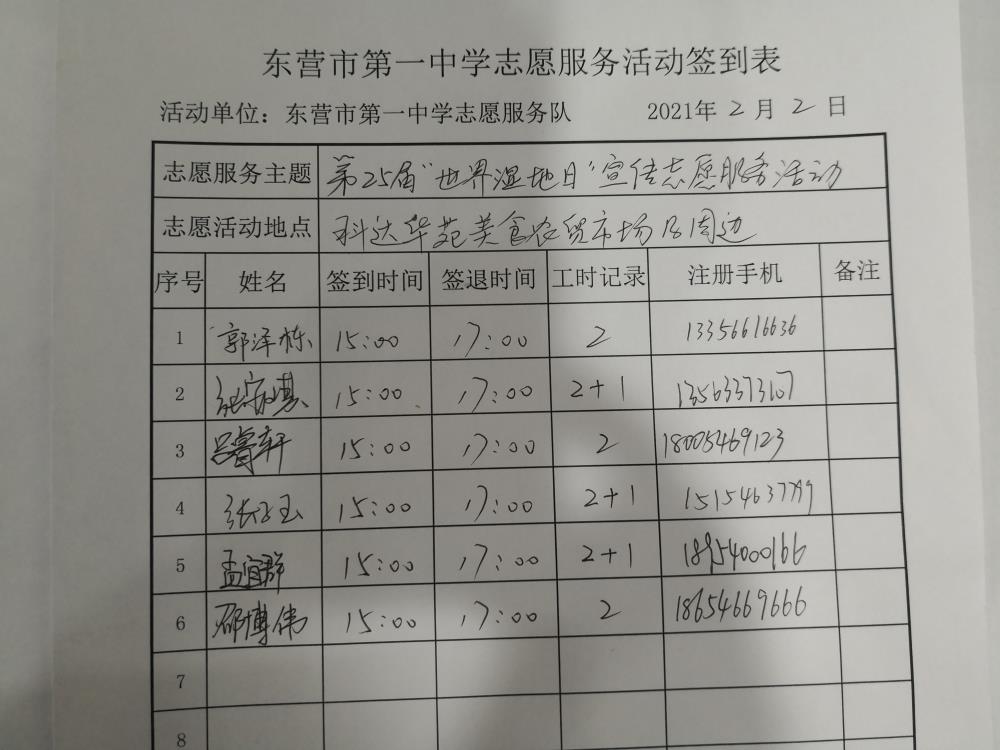 东营市第一中学志愿服务活动签到表
活动单位：东营市第一中学志愿服务队 2021年 2 月 2 日
志愿服务主题 第25届“世界湿地日”宣传志愿服务活动
志愿活动地点 科达华苑美食农贸市场及周边
序号 姓名 签到时间 签退时间 工时记录 注册手机 备注
1 郭泽栋 15:00 17:00 2 13356616636
2 15:00 17:00 2+1 13563373107
3 吕睿轩 15:00 17:00 2 18005469123
4 张子玉 15:00 17:00 2+1
5 孟宜群 15:00 17:00 2+1 18954000166
6 邵博伟 15:00 17:00 2 18654669666
7
8